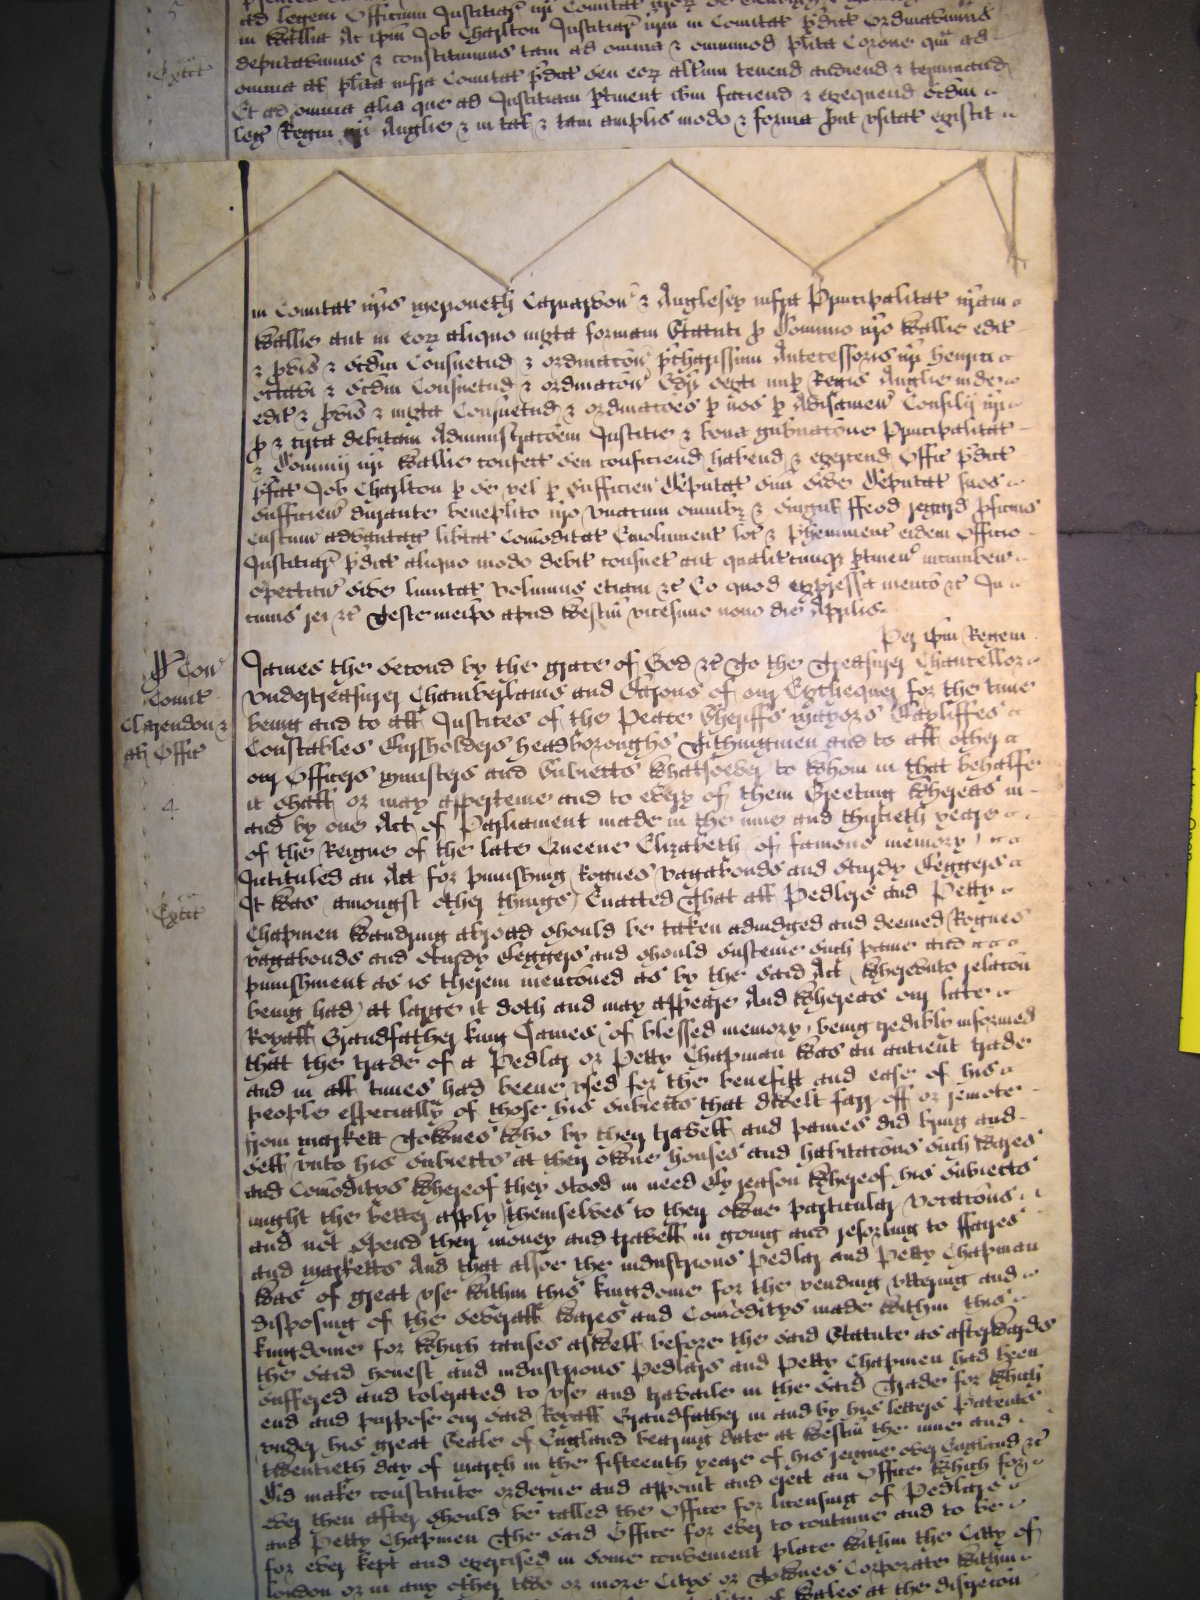 ad legem Officium Justiciar nri Comitat
in Wallia Ac ipm Job Charlton Justiciar nrm in Comitat pdict Ordinavimus
deputavimus & constituimus tam ad omnia & omnimod plita Corone qua ad
omnia al plita infra Comitat pdict seu eor alium tenend audiend & terminand
Et ad omnia alia que ad Justiciam ptinent ibm faciend & exequend scdm
leg Regni nri Anglie & in tal & tam amplis modo & forma put usitat existit
Extit
in Comitat nris Meryoneth Carnarvon & Anglesey infra Principalitat nram
Wallie aut in eor aliquo iuxta formam Statuti p Dominio nro Wallie edit
& pvis & scdm Consuetud & ordinacon pcharissimi Antecessoris nri Henrici
octavi & scdm Consuetud & ordinacon Dni sexti nup Regis Anglie inde
edit & pvis & iuxta Consuetud & ordinacoes p nos p Advisamen Consilij nri
p & circa debitam Administracoem Justicie & bona gubnacone Principalitat
& Dominij nri Wallie confect seu conficiend habend & exercend Offic pdict
pfat Job Charlton p se vel p sufficien Deputat suu sive Deputat suos
sufficien durante beneplito nro unacum omnibz & singul ffeod regard pficuis
custum advantag libtat Comoditat Emolument loc & pheminent eidem Officio
Justiciar pdict aliquo modo debit consuet aut qualitcunqz ptinen incumben
spectan sive limitat Volumus etiam &c Eo quod expressa mencio &c In
cuius rei &c Teste meipo apud Westm vicesimo nono die Aprilis
Per ipm Regem
Com
Comit
Clarendon &
al Offic
4
Extit
James the Second by the grace of God &c To the Treasurer Chancellor
Undertreasurer Chamberlains and Barons of our Exchequer for the time
being and to all Justices of the Peace Sheriffs Mayors Bayliffes
Constables Bursholders headboroughs Tithingmen and to all other
our Officers Ministers and Subiects Whatsoever to Whom in that behalfe
it shall or may apperteine and to every of them Greeting Whereas in
and by one Act of Parliament made in the nine and thirtieth yeare
of the Reigne of the late Queene Elizabeth of famous memory
Intituled an Act for punishing Rogues vagabonds and Sturdy Beggers
It Was (amongst other things) Enacted That all Pedlers and Petty
Chapmen Wandring abroad should be taken adiudged and deemed Rogues
vagabonds and Sturdy Beggers and should susteine such paine and
punishment as is therein mencioned as by the said Act (Whereunto relacon
being had) at large it doth and may appeare And Whereas our late
Royall Grandfather King James (of blessed memory) being credibly informed
that the trade of a Pedlar or Petty Chapman Was an antient trade
and in all times had beene used for the benefitt and ease of his
people especially of those his subiects that dwelt farr off or remote
from Markett Townes Who by their travell and paines did bring and
sell unto his Subiects at their owne houses and habitacons such Wares
and Comoditys Whereof they stood in need By reason Whereof his Subiects
might the better apply themselves to their owne particular vocacons
and not spend their money and travell in going and resorting to ffaires
and Marketts And that alsoe the industrious Pedlar and Petty Chapman
Was of great use Within this Kingdome for the vending uttering and
disposing of the severall Wares and Comoditys made Within this
Kingdome for Which causes asWell before the said Statute as afterWards
the said honest and industrious Pedlars and Petty Chapmen had been
suffered and tolerated to use and travaile in the said Trade for Which
end and purpose our said Royall Grandfather in and by his letters Patents
under his great Seale of England bearing date at Westm the nine and
tWentieth day of March in the fifteenth yeare of his reigne over England &c
Did make constitute ordeine and appoint and erect an Office Which for
ever then after should be called the Office for licensing of Pedlars
and Petty Chapmen The said Office for ever to continue and to be
for ever kept and exercised in some convenient place Within the City of
London or in any other two or more Citys or Townes Corporate Within
of Wales at the discrecon